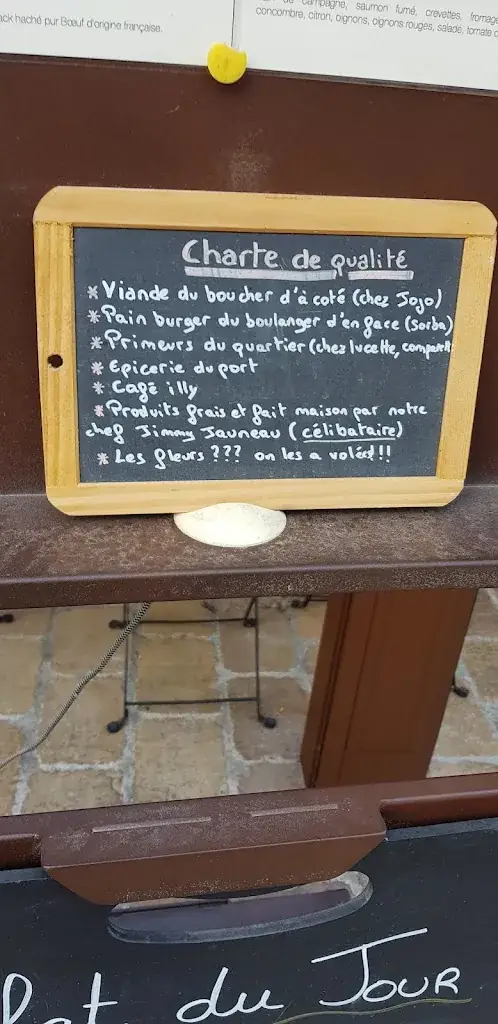 ack haché pur Bœuf d'origine française.
campagne, saumon fumé, crevettes, fromage
concombre, citron, oignons, oignons rouges, salade, tomate
Charte de qualité
* Viande du boucher d'à coté (chez Jojo)
* Pain burger du boulanger d'en face (Sorba)
* Primeurs du quartier (chez lucette,
* Epicerie du port
* Café illy
* Produits frais et fait maison par notre
chef Jimmy Jauneau (célibataire)
* Les fleurs ??? on les a volées!!
du Jour